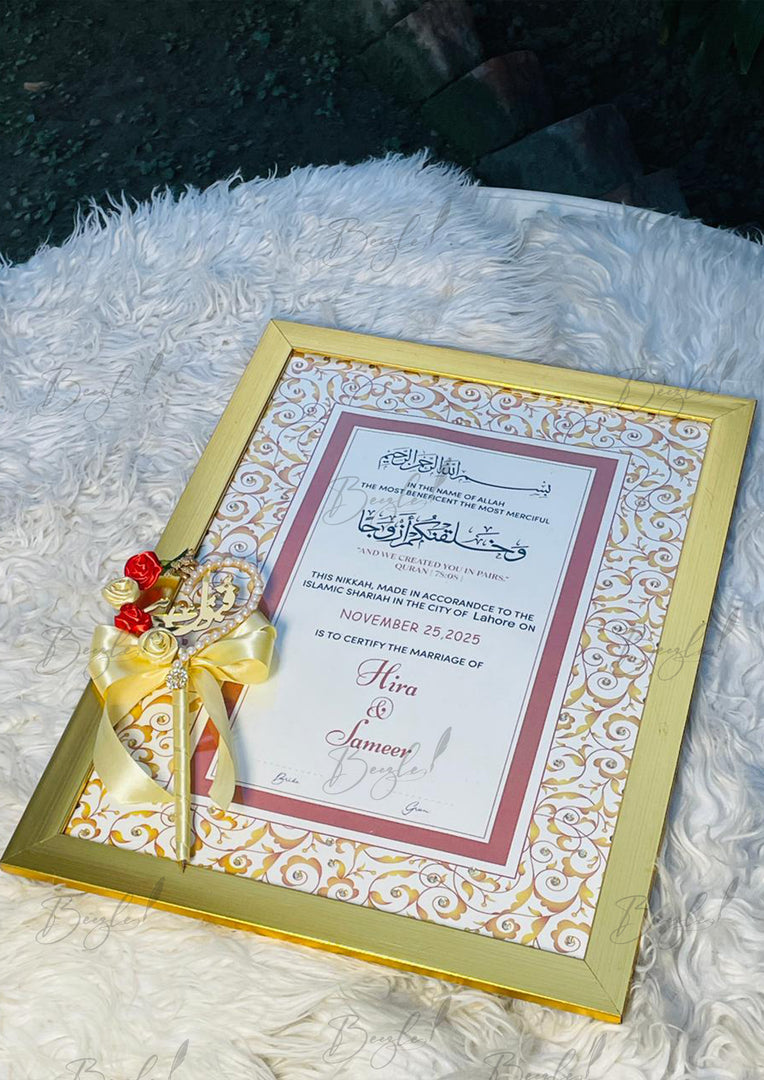 بِسْمِ اللهِ الرَّحْمٰنِ الرَّحِيْمِ
IN THE NAME OF ALLAH
THE MOST BENEFICENT THE MOST MERCIFUL
وَخَلَقْنٰكُمْ أَزْوٰجًا
"AND WE CREATED YOU IN PAIRS."
QURAN | 78:08 |
THIS NIKKAH, MADE IN ACCORANDCE TO THE
ISLAMIC SHARIAH IN THE CITY OF Lahore ON
NOVEMBER 25,2025
IS TO CERTIFY THE MARRIAGE OF
Hira
&
Sameer
Bride
Beezle